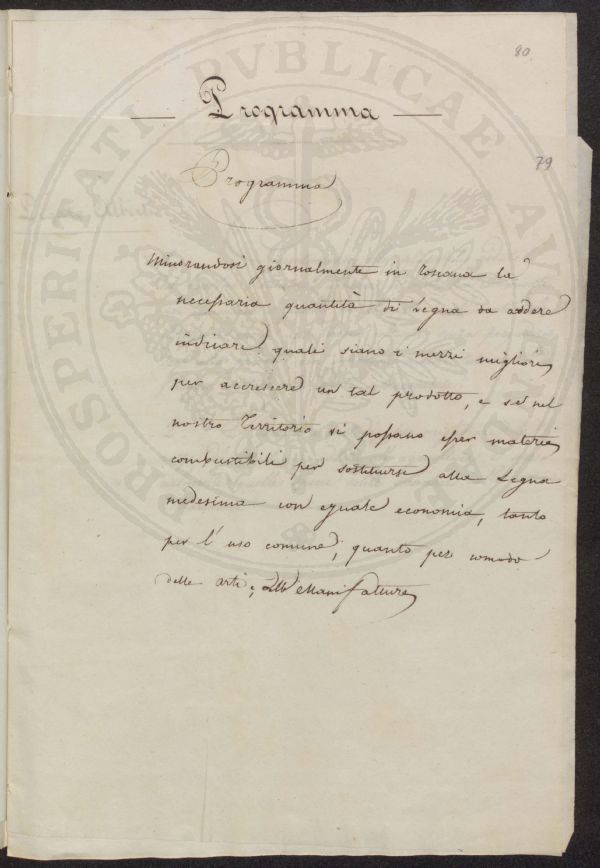 80
— Programma —
79
Programma
Minorandosi giornalmente in Toscana la
necessaria quantità di Legna da ardere
indicare quali siano i mezzi migliori
per accrescere un tal prodotto, e se nel
nostro Territorio vi possano esser materie
combustibili per sostituirsi alla Legna
medesima con eguale economia, tanto
per l' uso comune, quanto per comodo
delle arti, e Manifatture
PROSPERITATI PVBLICAE AVGENDAE